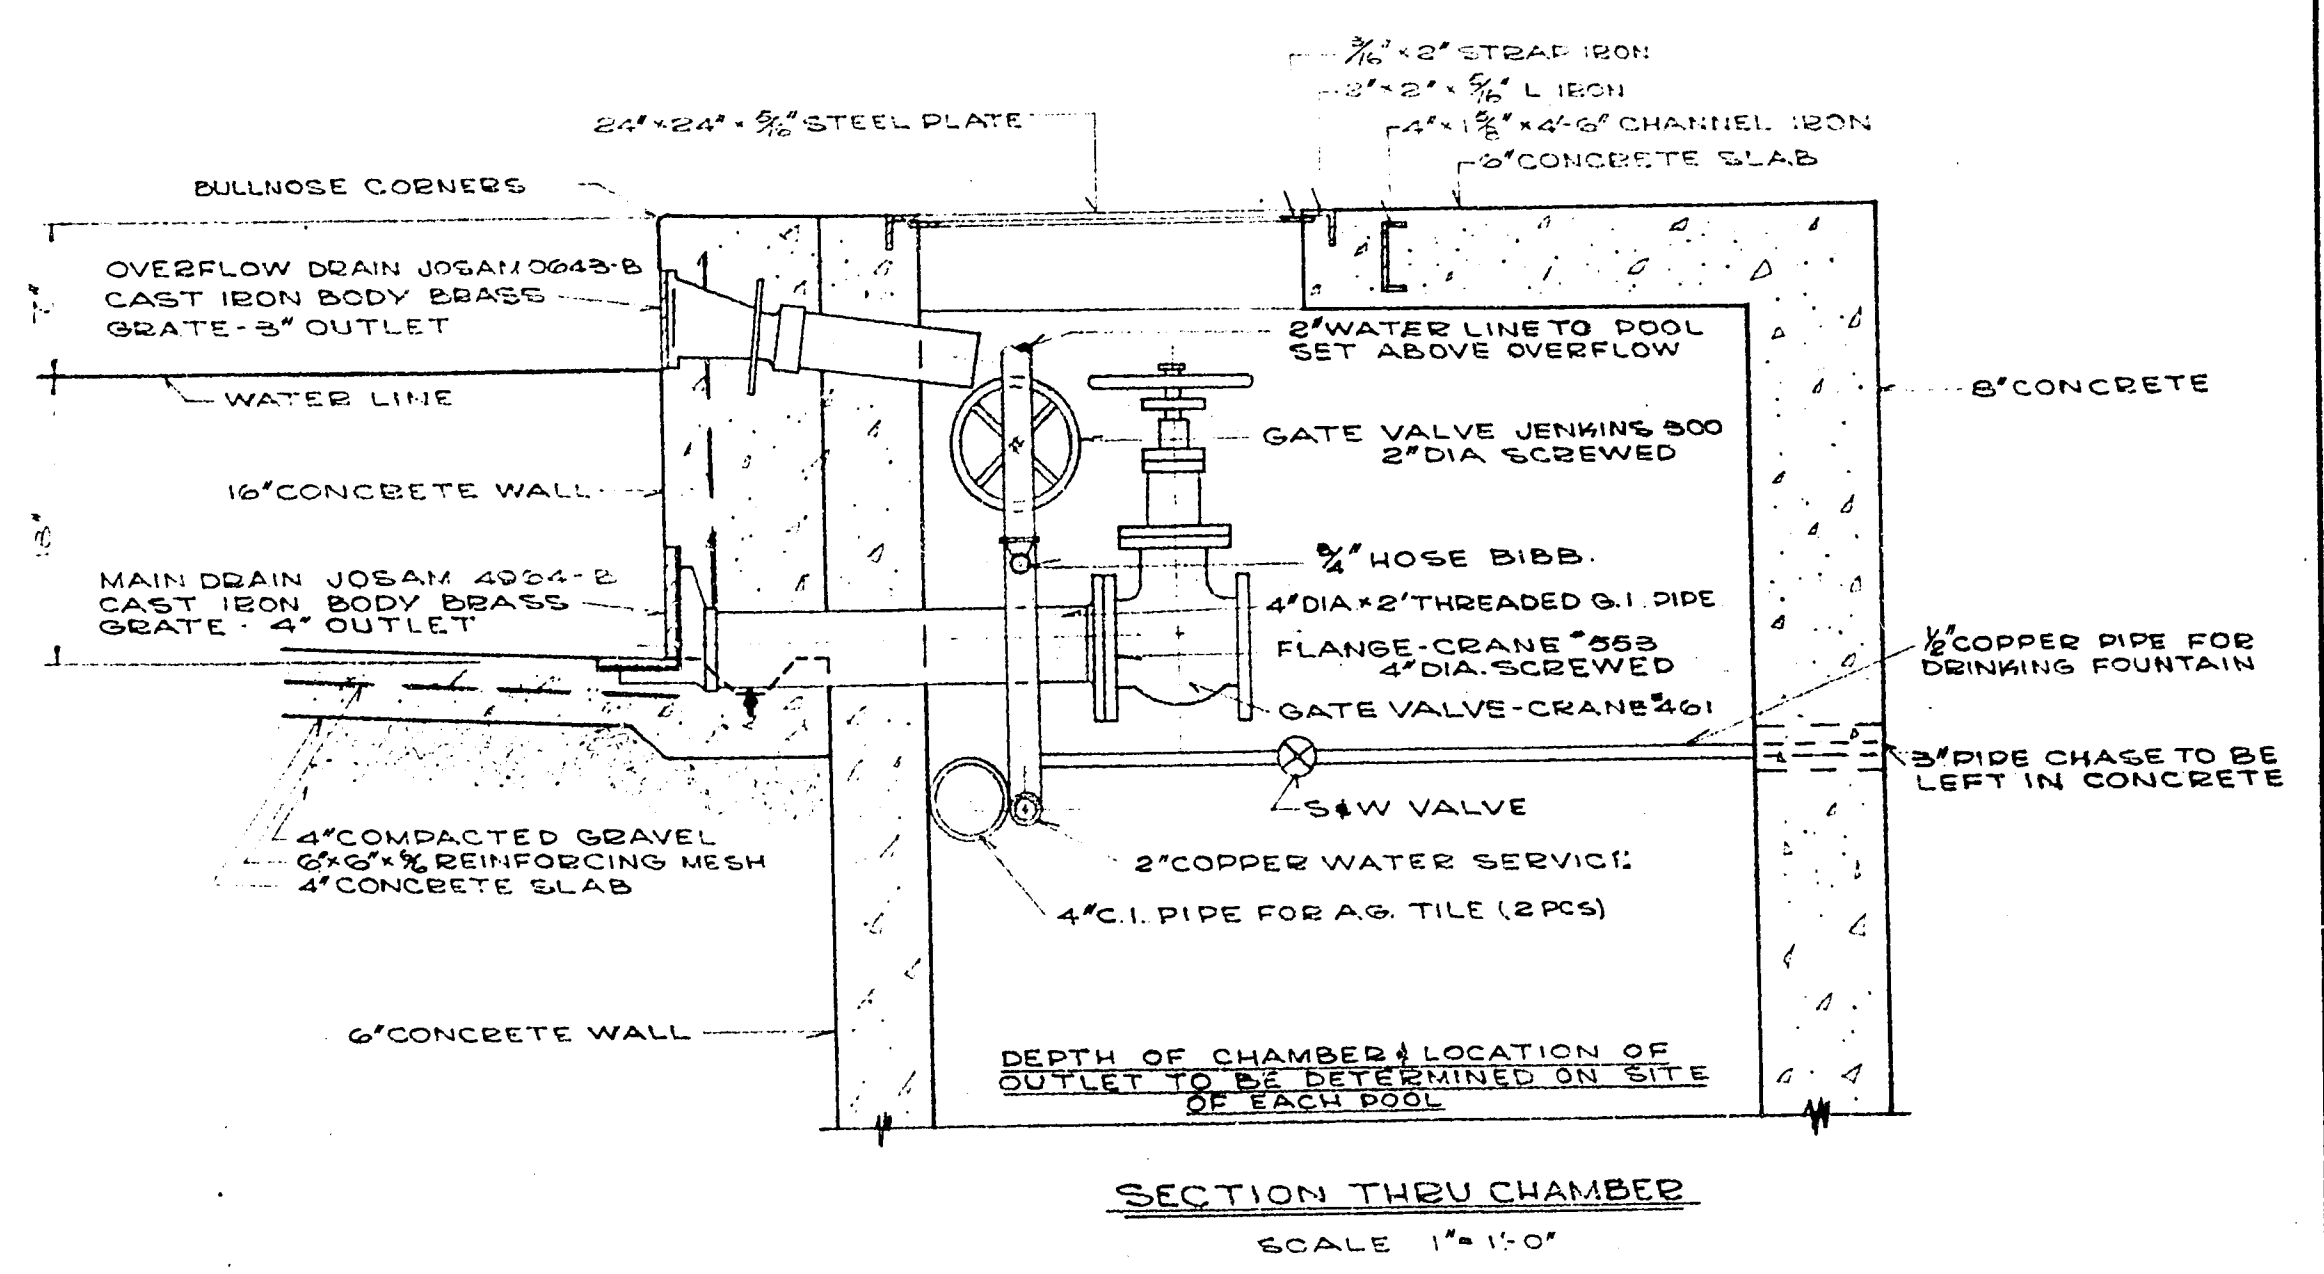 3/16" x 2" STRAP IRON
2" x 2" x 5/16" L IRON
24" x 24" x 5/16" STEEL PLATE
4" x 1 5/8" x 4'-6" CHANNEL IRON
6" CONCRETE SLAB
BULLNOSE CORNERS
OVERFLOW DRAIN JOSAM
CAST IRON BODY BRASS
GRATE - 3" OUTLET
7"
2" WATER LINE TO POOL
SET ABOVE OVERFLOW
WATER LINE
8" CONCRETE
GATE VALVE JENKINS
2" DIA SCREWED
16" CONCRETE WALL
18"
3/4" HOSE BIBB.
MAIN DRAIN JOSAM
CAST IRON BODY BRASS
GRATE - 4" OUTLET
4" DIA x 2' THREADED G.I. PIPE
FLANGE-CRANE #553
4" DIA. SCREWED
GATE VALVE-CRANE #461
1/2" COPPER PIPE FOR
DRINKING FOUNTAIN
3" PIPE CHASE TO BE
LEFT IN CONCRETE
S & W VALVE
4" COMPACTED GRAVEL
6" x 6" x 6/6 REINFORCING MESH
4" CONCRETE SLAB
2" COPPER WATER SERVICE
4" C.I. PIPE FOR A.G. TILE (2 PCS)
6" CONCRETE WALL
DEPTH OF CHAMBER & LOCATION OF
OUTLET TO BE DETERMINED ON SITE
OF EACH POOL
SECTION THRU CHAMBER
SCALE 1" = 1'-0"